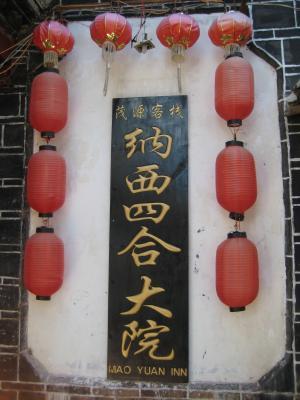 茂源客栈
纳西四合大院
MAO YUAN INN